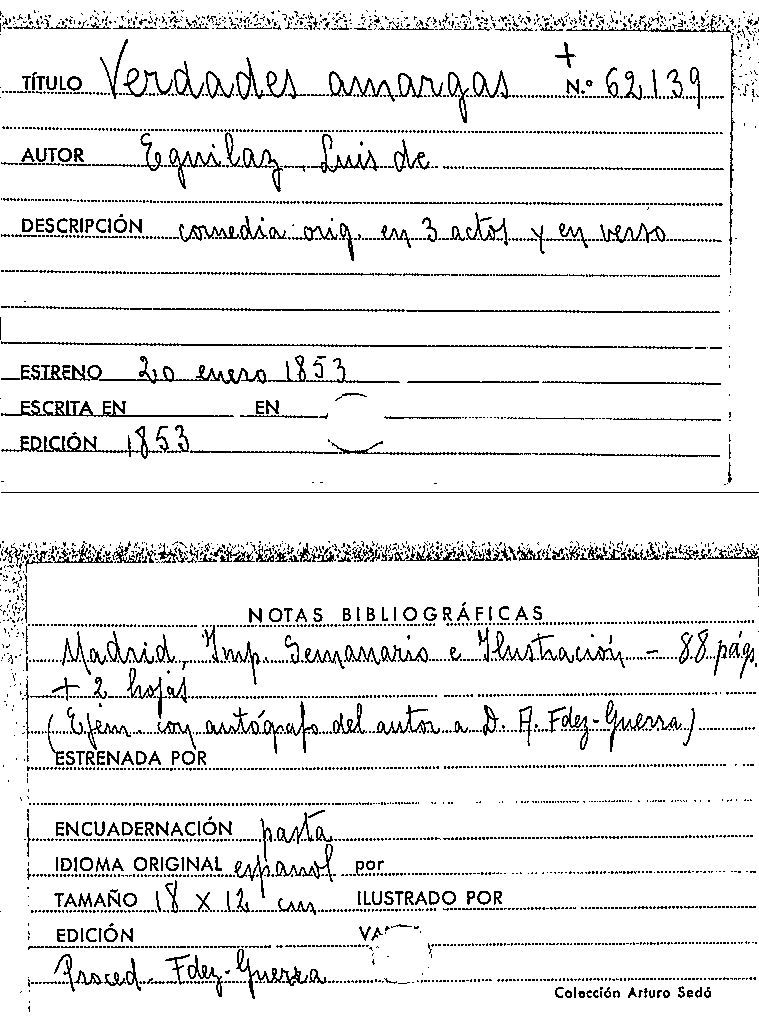 TÍTULO Verdades amargas + N.º 62139
AUTOR Eguilaz, Luis de
DESCRIPCIÓN comedia orig. en 3 actos y en verso
ESTRENO 20 enero 1853
ESCRITA EN EN
EDICIÓN 1853
NOTAS BIBLIOGRÁFICAS
Madrid, Imp. Semanario e Ilustración - 88 págs.
+ 2 hojas
(Ejem. con autógrafo del autor a D. A. Fdez-Guerra)
ESTRENADA POR
ENCUADERNACIÓN pasta
IDIOMA ORIGINAL español por
TAMAÑO 18 x 12 cm ILUSTRADO POR
EDICIÓN
Proced. Fdez-Guerra
Colección Arturo Sedó